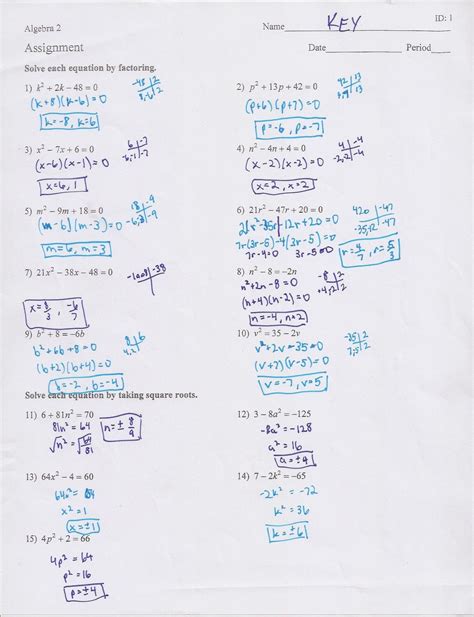 ID: 1
Algebra 2
Name KEY
Assignment
Date Period
Solve each equation by factoring.
1) k² + 2k − 48 = 0
-48 | 2
8,-6 | 2
(k+8)(k-6)=0
k=-8, k=6
2) p² + 13p + 42 = 0
42 | 13
(p+6)(p+7)=0
p=-6, p=-7
3) x² − 7x + 6 = 0
6 | -7
-6,-1 | -7
(x-6)(x-1)=0
x=6, 1
4) n² − 4n + 4 = 0
4 | -4
-2,-2 | -4
(x-2)(x-2)=0
x=2, x=2
5) m² − 9m + 18 = 0
18 | -9
-6,-3 | -9
(m-6)(m-3)=0
m=6, m=3
6) 21r² − 47r + 20 = 0
420 | -47
-35,-12 | -47
21r²-35r-12r+20=0
7r(3r-5)-4(3r-5)=0
7r-4=0 3r-5=0
r=4/7, r=5/3
7) 21x² − 38x − 48 = 0
-1008 | -38
x=8/3, -6/7
8) n² − 8 = −2n
-8 | 2
+4,-2 | 2
n²+2n-8=0
(n+4)(n-2)=0
n=-4, n=2
9) b² + 8 = −6b
8 | 6
4,2
b²+6b+8=0
(b+2)(b+4)=0
b=-2, b=-4
10) v² = 35 − 2v
-35 | 2
v²+2v-35=0
(v+7)(v-5)=0
v=-7, v=5
Solve each equation by taking square roots.
11) 6 + 81n² = 70
81n² = 64
√n² = √64/81
n=± 8/9
12) 3 − 8a² = −125
-8a² = -128
a² = 16
a = ±4
13) 64x² − 4 = 60
64x² = 64
x² = 1
x = ±1
14) 7 − 2k² = −65
-2k² = -72
k² = 36
k = ±6
15) 4p² + 2 = 66
4p² = 64
p² = 16
p = ±4